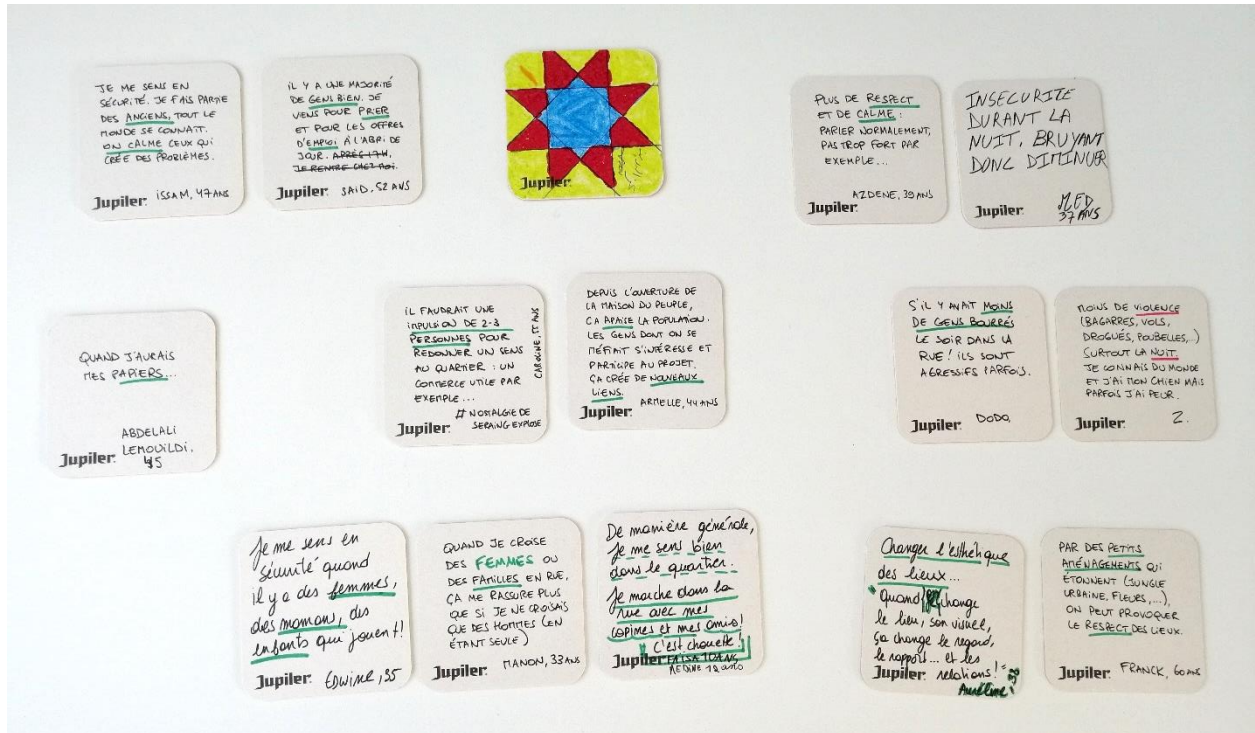 JE ME SENS EN
SÉCURITÉ. JE FAIS PARTIE
DES ANCIENS, TOUT LE
MONDE SE CONNAIT.
ON CALME CEUX QUI
CRÉE DES PROBLÈMES.
Jupiler. ISSAM, 47 ANS
IL Y A UNE MAJORITÉ
DE GENS BIEN. JE
VIENS POUR PRIER
ET POUR LES OFFRES
D'EMPLOI À L'ABRI DE
JOUR. APRÈS 17H,
JE RENTRE CHEZ MOI.
Jupiler. SAID, 52 ANS
Jupiler.
PLUS DE RESPECT
ET DE CALME :
PARLER NORMALEMENT,
PAS TROP FORT PAR
EXEMPLE...
AZDENE, 39 ANS
Jupiler.
INSECURITE
DURANT LA
NUIT, BRUYANT
DONC DIMINUER
Jupiler. MED
37 ANS
QUAND J'AURAIS
MES PAPIERS...
ABDELALI
LEMOUILDI.
Jupiler. 45
IL FAUDRAIT UNE
IMPULSION DE 2-3
PERSONNES POUR
REDONNER UN SENS
AU QUARTIER : UN
COMMERCE UTILE PAR
EXEMPLE...
# NOSTALGIE DE
Jupiler. SERAING EXPLOSE
DEPUIS L'OUVERTURE DE
LA MAISON DU PEUPLE,
ÇA APAISE LA POPULATION.
LES GENS DONT ON SE
MÉFIAIT S'INTÉRESSE ET
PARTICIPE AU PROJET.
ÇA CRÉE DE NOUVEAUX
LIENS.
Jupiler. ARMELLE, 44 ANS
S'IL Y AVAIT MOINS
DE GENS BOURRÉS
LE SOIR DANS LA
RUE ! ILS SONT
AGRESSIFS PARFOIS.
Jupiler. DODO,
MOINS DE VIOLENCE
(BAGARRES, VOLS,
DROGUÉS, POUBELLES,...)
SURTOUT LA NUIT.
JE CONNAIS DU MONDE
ET J'AI MON CHIEN MAIS
PARFOIS J'AI PEUR.
Jupiler. Z.
Je me sens en
sécurité quand
il y a des femmes,
des maman, des
enfants qui jouent !
Jupiler. Edwine, 35
QUAND JE CROISE
DES FEMMES OU
DES FAMILLES EN RUE,
ÇA ME RASSURE PLUS
QUE SI JE NE CROISAIS
QUE DES HOMMES (EN
ÉTANT SEULE)
Jupiler. MANON, 33 ANS
De manière générale,
je me sens bien
dans le quartier.
Je marche dans la
rue avec mes
copines et mes amis !
C'est chouette !
Jupiler. 10 ANS,
12 ans
Changer l'esthétique
des lieux...
Quand change
le lieu, son visuel,
ça change le regard,
le rapport... et les
Jupiler. relations !
PAR DES PETITS
AMÉNAGEMENTS QUI
ÉTONNENT (JUNGLE
URBAINE, FLEURS,...),
ON PEUT PROVOQUER
LE RESPECT DES LIEUX.
Jupiler. FRANCK, 60 ANS